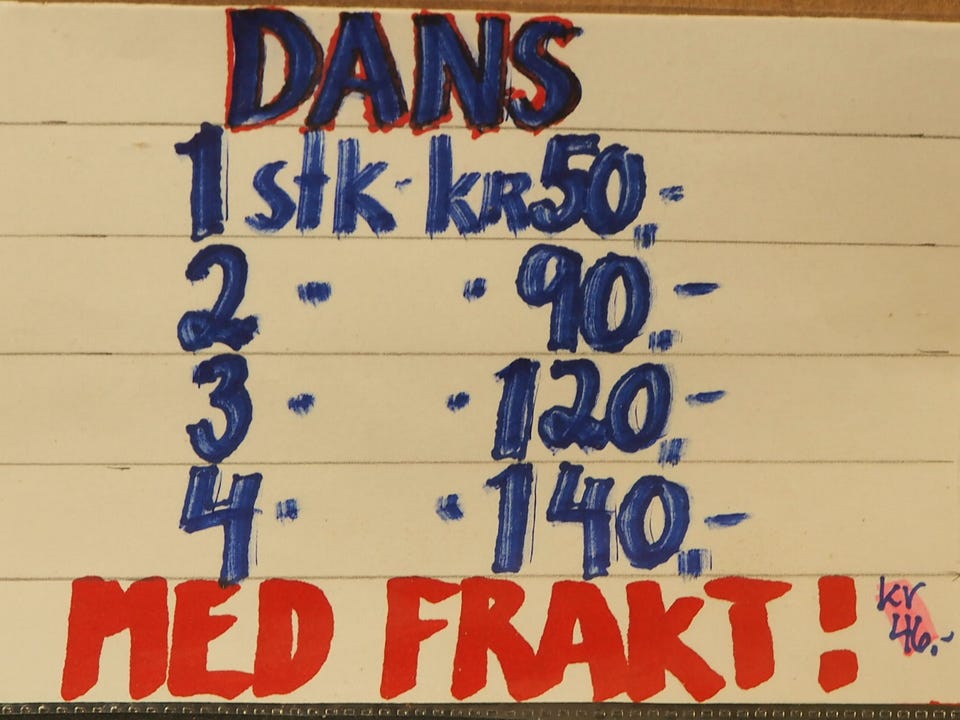 DANS
1 stk - kr 50,-
2 · · 90,-
3 · · 120,-
4 · · 140,-
MED FRAKT!
kr
46,-